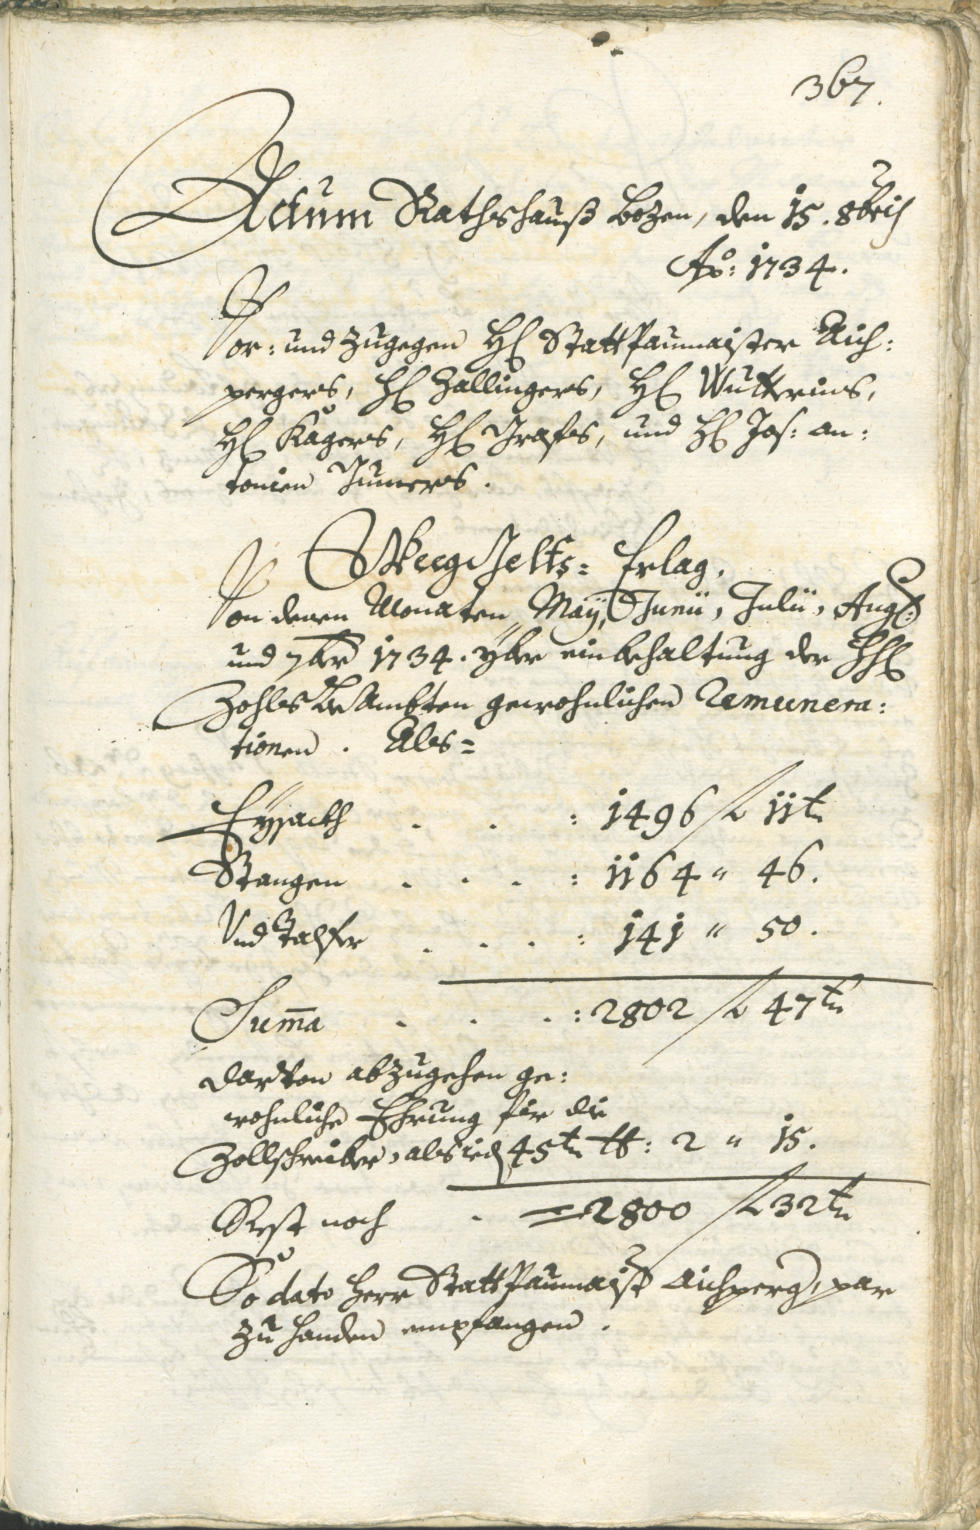 367.
Actum Rathshauß Bozen, den 15. 8bris
Ao: 1734.
Vor- und zugegen H. Statt Paumaister Aich-
pergers, H. Zallingers, H. Wütterins,
H. Kagers, H. Grafes, und H. Jos: An-
tonien Gumers.
Weeg Gelts- Erlag.
Von denen Monaten May, Junii, Julii, Aug:
und 7ber 1734. yber einbehaltung der HH
Zohls Be Ambten gewohnlichen Remunera-
tionen. Als=
Eysackh . . : 1496 f 11 kr
Stangen . . . : 1164 " 46.
Und Talfer . . . : 141 " 50.
Summa . . . : 2802 f 47 kr
darvon abzugehen ge-
wohnliche Ehrung für die
Zollschreiber, als ied 45 kr tt: 2 " 15.
Rest noch . = 2800 f 32 kr
So dato Herr Statt Paumaister Aichperger, par
zu handen empfangen.